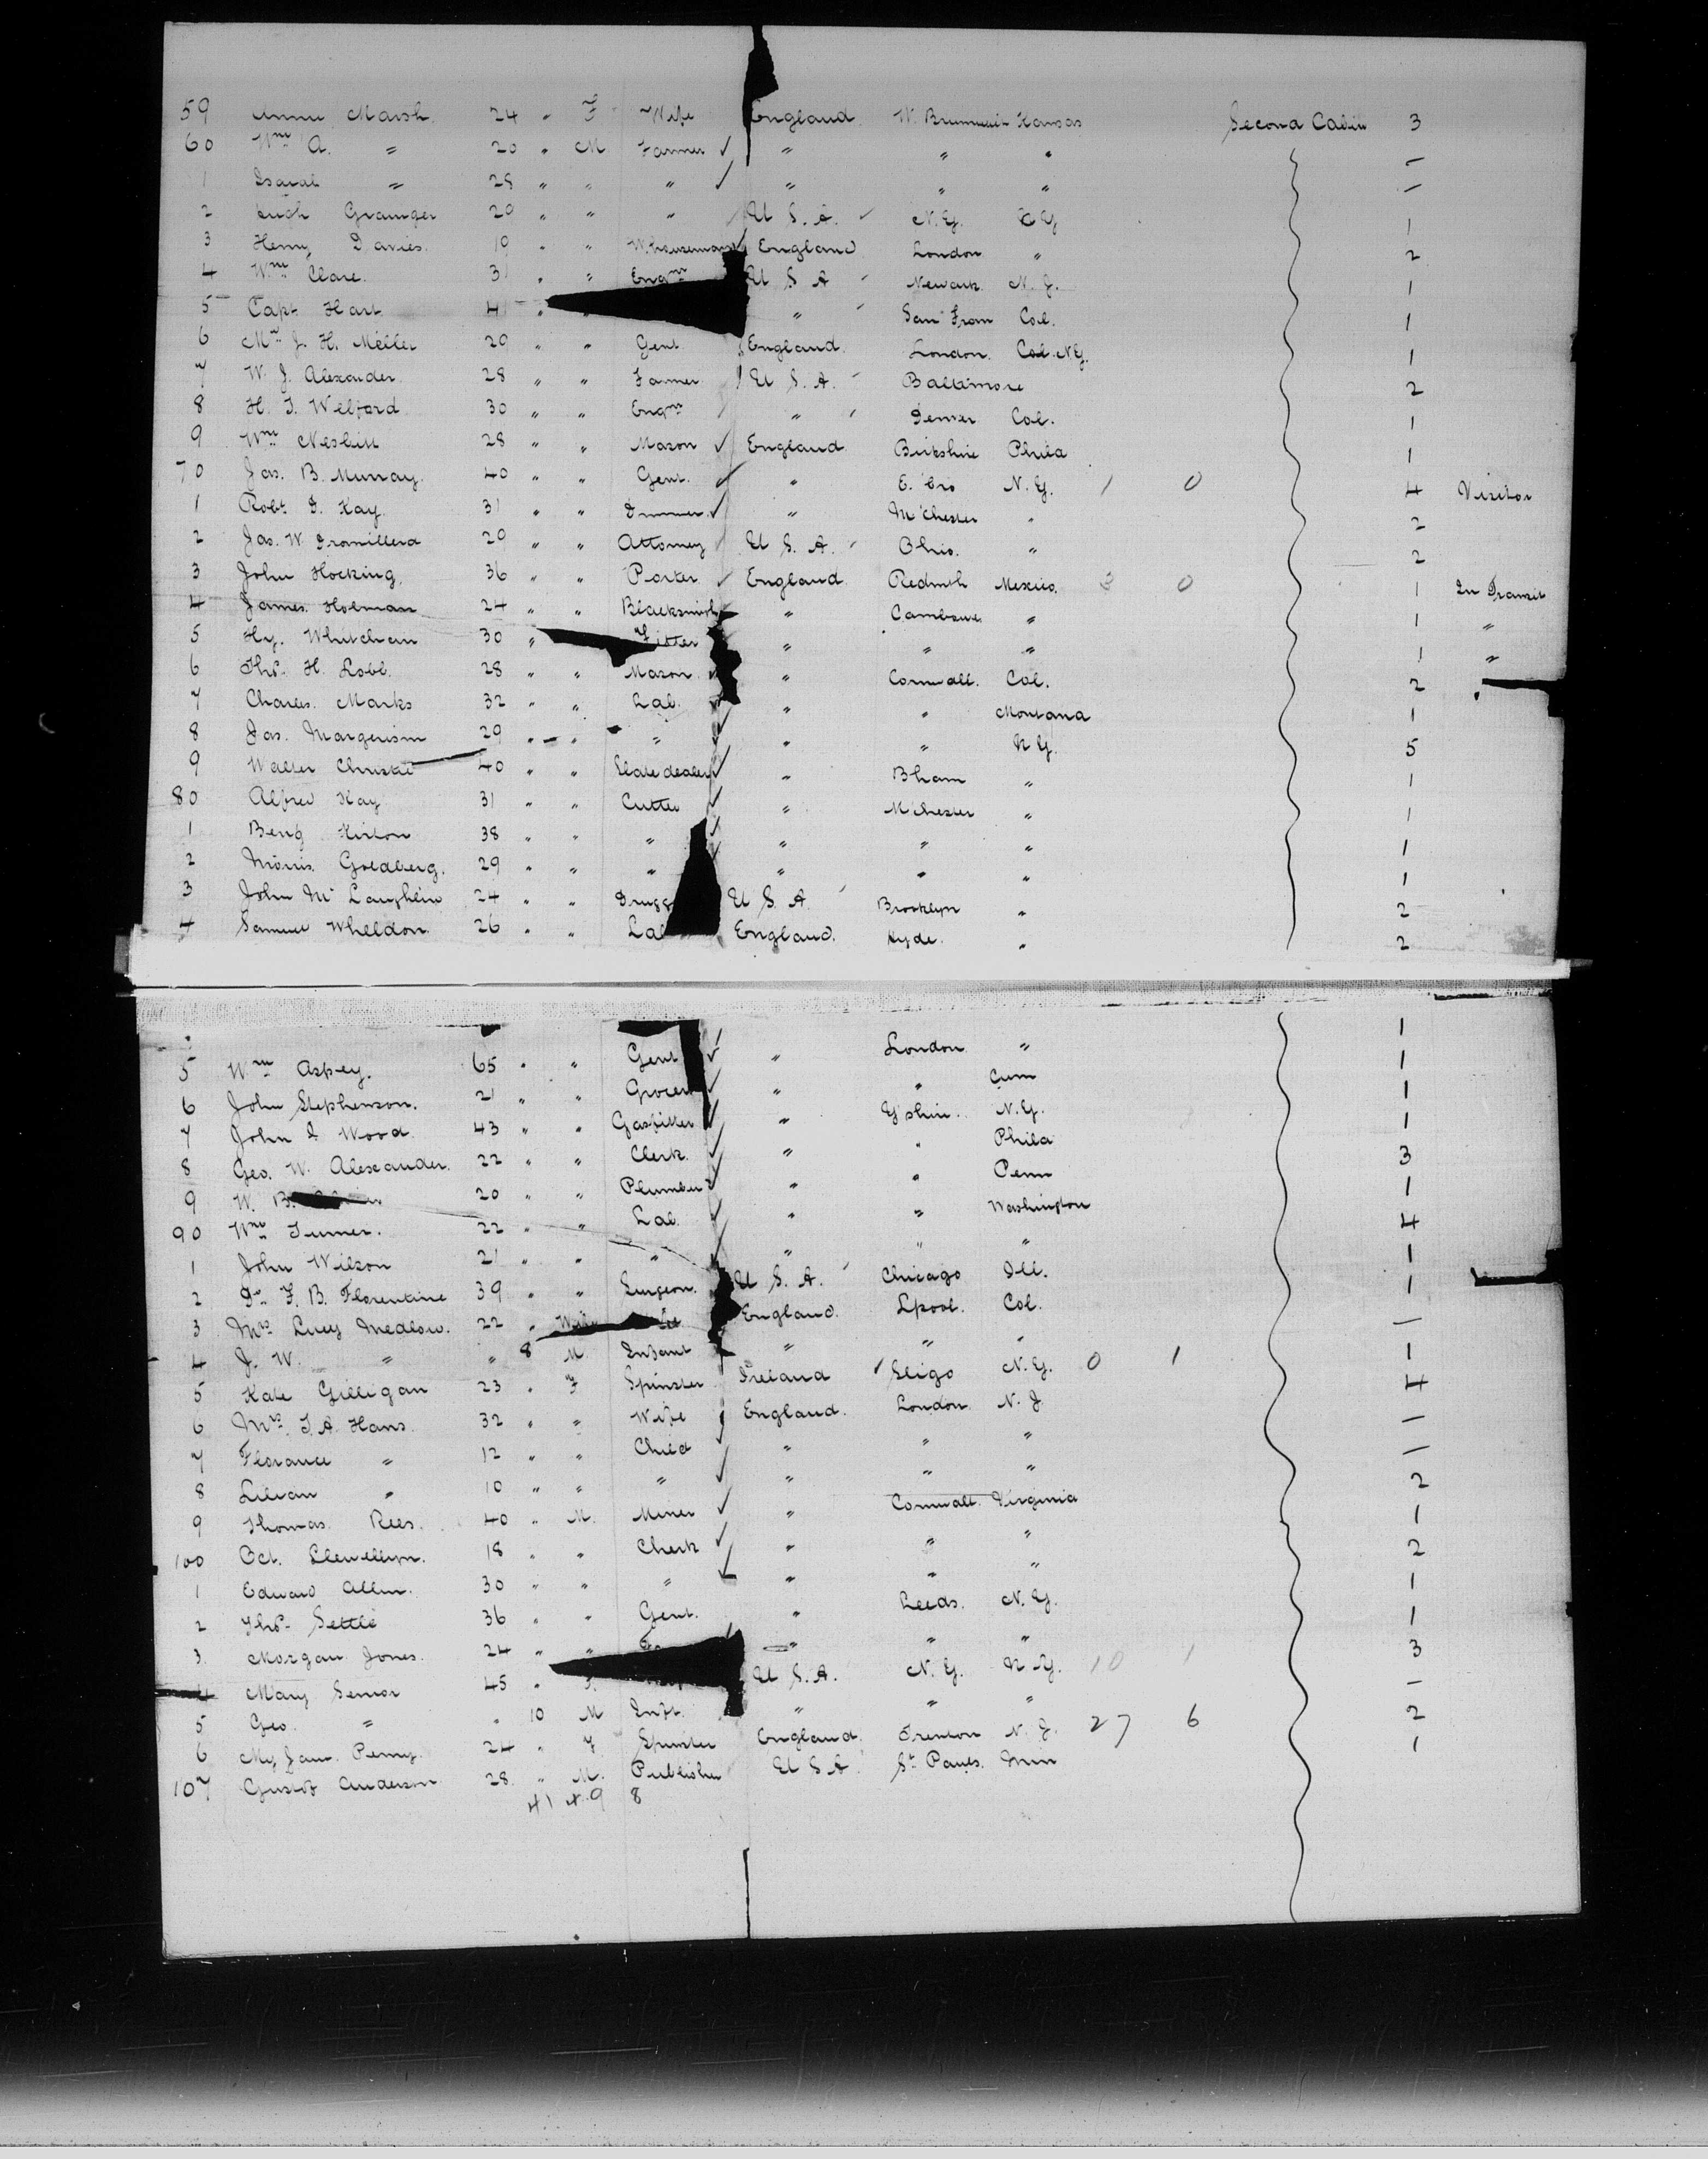 59 Annie Marsh. 24 " F Wife England W. Bromwich Kansas Second Cabin 3
60 Wm A. " 20 " M Farmer ✓ " " " —
1 " 28 " " " ✓ " " " —
2 Hugh Grainger 20 " " " U S. A. N. Y. N Y 1
3 Henry Davies. 19 " " W.houseman England London " 2
4 Wm Clare. 31 " " Engnr U S A Newark N. J. 1
5 Capt Hart 41 " " San Fran Cal. 1
6 Mr J. H. Meller 29 " " Gent England. London. N.Y. 1
7 W. J. Alexander 28 " " Farmer U S. A. Baltimore 2
8 H. T. Welford 30 " " Engnr " Denver Col. 1
9 Wm Nesbitt 28 " " Mason ✓ England Phila 1
70 Jas. B. Murray. 40 " " Gent. ✓ " N. Y. 1 0 4 Visitor
1 Robt D. Kay. 31 " " ✓ " M'Chester " 2
2 Jas. W. 29 " " Attorney U S. A. Ohio. " 2
3 John Hocking. 36 " " Porter ✓ England Redruth Mexico. 3 0 1 In Transit
4 James Holman 24 " " Blacksmith " Camborne " 1 "
5 Hy. Whitcham 30 " Fitter " " " 1 "
6 Thos. H. Lobb. 28 " " Mason. " Cornwall. Cal. 2 "
7 Charles Marks 32 " " Lab. ✓ " " Montana 1
8 Jas. Margerism 29 " " " ✓ " " N Y. 5
9 Walter Christie 40 " " Slate dealer ✓ " Bham " 1
80 Alfred Kay 31 " " Cutter ✓ " M'Chester " 1
1 Benj Kirton 38 " " " ✓ " " " 1
2 Morris Goldberg. 29 " " " " " " 1
3 John McLaughlin 24 " " Drugg U S. A. Brooklyn " 2
4 Samuel Wheldon. 26 " " Lab England. Hyde. " 2
5 Wm Aspey. 65 " " Gent ✓ " London " 1
6 John Stephenson. 21 " " Grocer ✓ " " 1
7 John Wood. 43 " " Gasfitter ✓ " Y'shire. N.Y. 1
8 Geo. W. Alexander. 22 " " Clerk. ✓ " " Phila 1
9 W. B. 20 " " Plumber ✓ " " Penn 3
90 Wm Turner. 22 " " Lab. ✓ " " Washington 1
1 John Wilson 21 " " " ✓ " " " 4
2 Dr F. B. Florentine 39 " " Surgeon. U S. A. Chicago Ill. 1
3 Mrs Lucy Medlow. 22 " England. Lpool. Col. 1
4 J. W. " " 8 M. Infant " " " —
5 Kate Gilligan 23 " F Spinster Ireland ✓ Sligo N.Y. 0 1 1
6 Mrs. T. A. Hans. 32 " " Wife England. London. N. J. 4
7 Florance " 12 " " Child ✓ " " " —
8 Lilian " 10 " " " ✓ " " " —
9 Thomas Rees. 40 " M. Miner ✓ " Cornwall. Virginia 2
100 Oct. Llewellyn. 18 " " Clerk ✓ " " " 1
1 Edward Allen. 30 " " " ✓ " " " 2
2 Thos. Settle 36 " " Gent. " Leeds. N. Y. 1
3. Morgan Jones. 24 " " " " " 1
4 Mary Senior 45 " F. U S. A. N. Y. N. Y. 10 1 3
5 Geo. " " 10 M Inft. " " " —
6 My Jane Penny. 24 " F Spinster England. Trenton N. J. 27 6 2
107 Gustof Anderson 28. " M. Publisher U S A. St Pauls. Minn 1
41 49 8